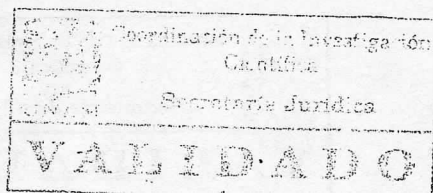 Coordinación de la Investigación
Científica
Secretaría Jurídica
VALIDADO